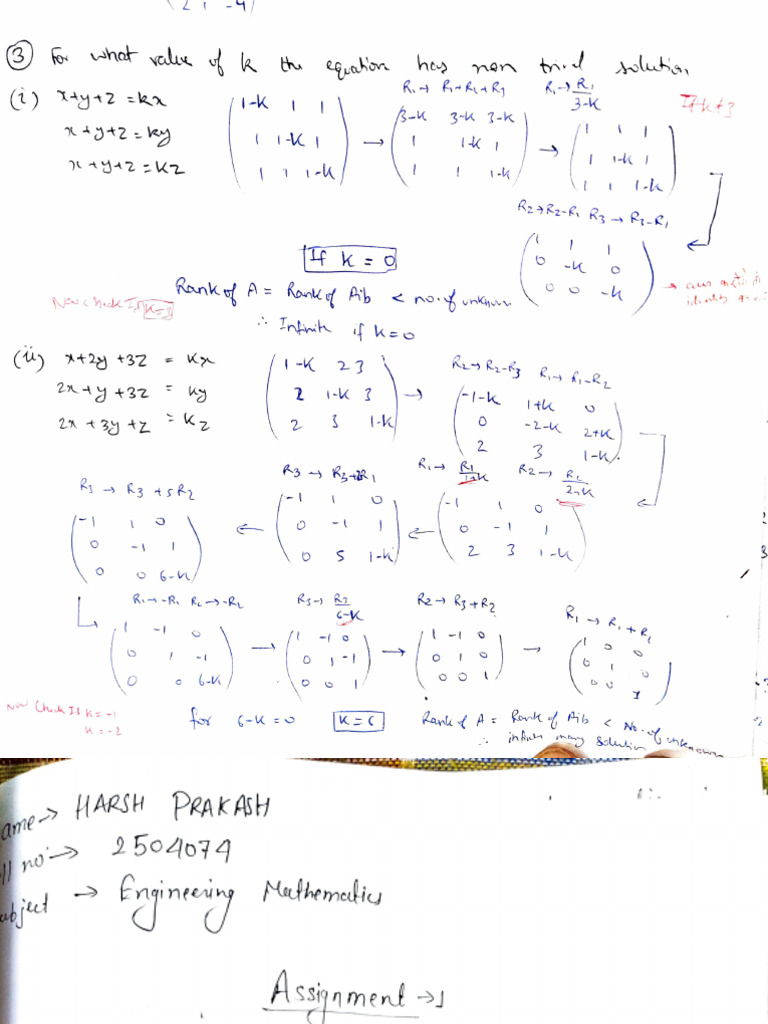 (2 1 -4)
③ For what value of k the equation has non trival solution
(i) x+y+z=kx
x+y+z=ky
x+y+z=kz
1-K 1 1
1 1-K 1
1 1 1-K
→
R₁→ R₁+R₂+R₃
3-K 3-K 3-K
1 1-K 1
1 1 1-K
→
R₁→ R₁/3-K
1 1 1
1 1-K 1
1 1 1-K
If k≠3
R₂→R₂-R₁ R₃→R₃-R₁
1 1 1
0 -K 0
0 0 -K
If K = 0
Rank of A = Rank of A:b < no. of unknown
∴ Infinite if k=0
Now check If k=3
(ii) x+2y+3z = Kx
2x+y+3z = Ky
2x+3y+z = Kz
1-K 2 3
2 1-K 3
2 3 1-K
→
R₂→R₂-R₃ R₁→R₁-R₂
-1-K 1+K 0
0 -2-K 2+K
2 3 1-K
R₁→ R₁/1+K R₂→ R₂/2+K
-1 1 0
0 -1 1
2 3 1-K
←
R₃→ R₃+2R₁
-1 1 0
0 -1 1
0 5 1-K
←
R₃→ R₃+5R₂
-1 1 0
0 -1 1
0 0 6-K
R₁→-R₁ R₂→-R₂
1 -1 0
0 1 -1
0 0 6-K
→
R₃→ R₃/6-K
1 -1 0
0 1 -1
0 0 1
→
R₂→R₃+R₂
1 -1 0
0 1 0
0 0 1
→
R₁→R₁+R₂
1 0 0
0 1 0
0 0 1
Now Check If k=-1
K=-2
for 6-K=0 K=6
Rank of A = Rank of A:b < No. of unknown
∴ infinite many solution
ame→ HARSH PRAKASH
ll no→ 2504074
ubject → Engineering Mathematics
Assignment→1